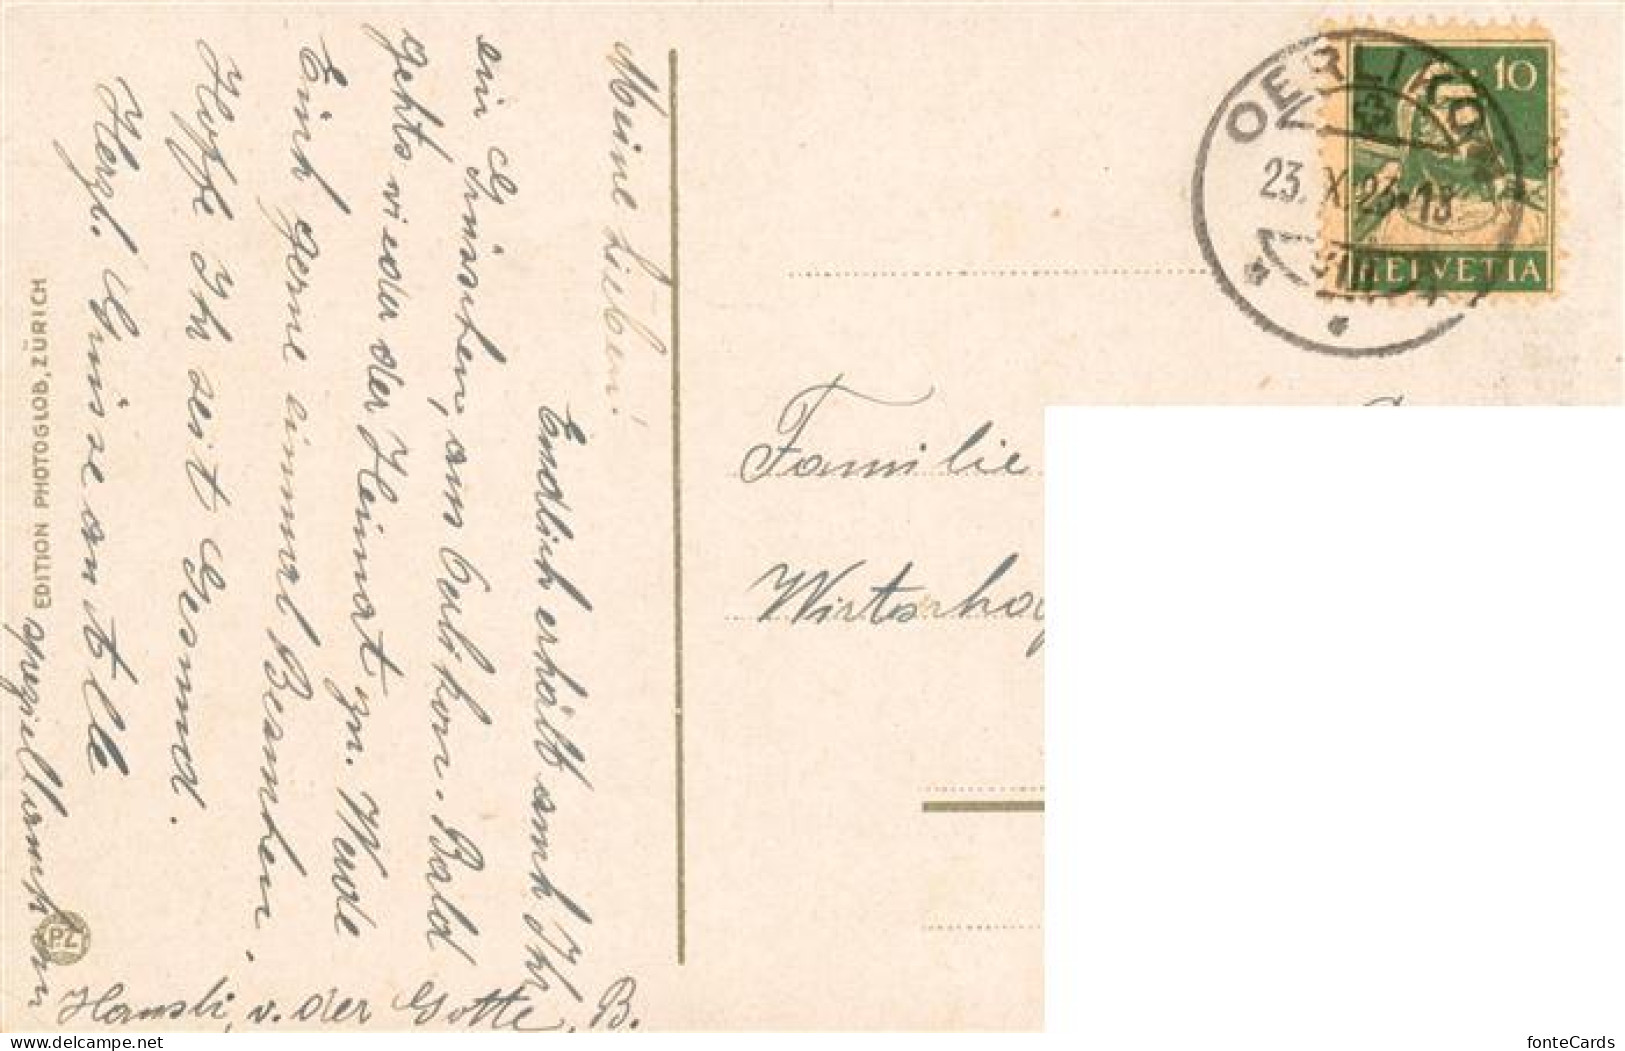 Meine Lieben!
Endlich erhält auch Ihr
ein Grüsschen, aus Oerlikon. Bald
gehts wieder der Heimat zu. Werde
Euch gerne einmal Besuchen.
Hoffe Ihr seit Gesund.
Herzl. Grüsse an alle
speziell auch an
Hansli, v. der Gotte, B.
EDITION PHOTOGLOB, ZÜRICH
PZ
OERLIKON
23. X. 23. 13
VIII
10
HELVETIA
Familie
delcampe.net
fonteCards